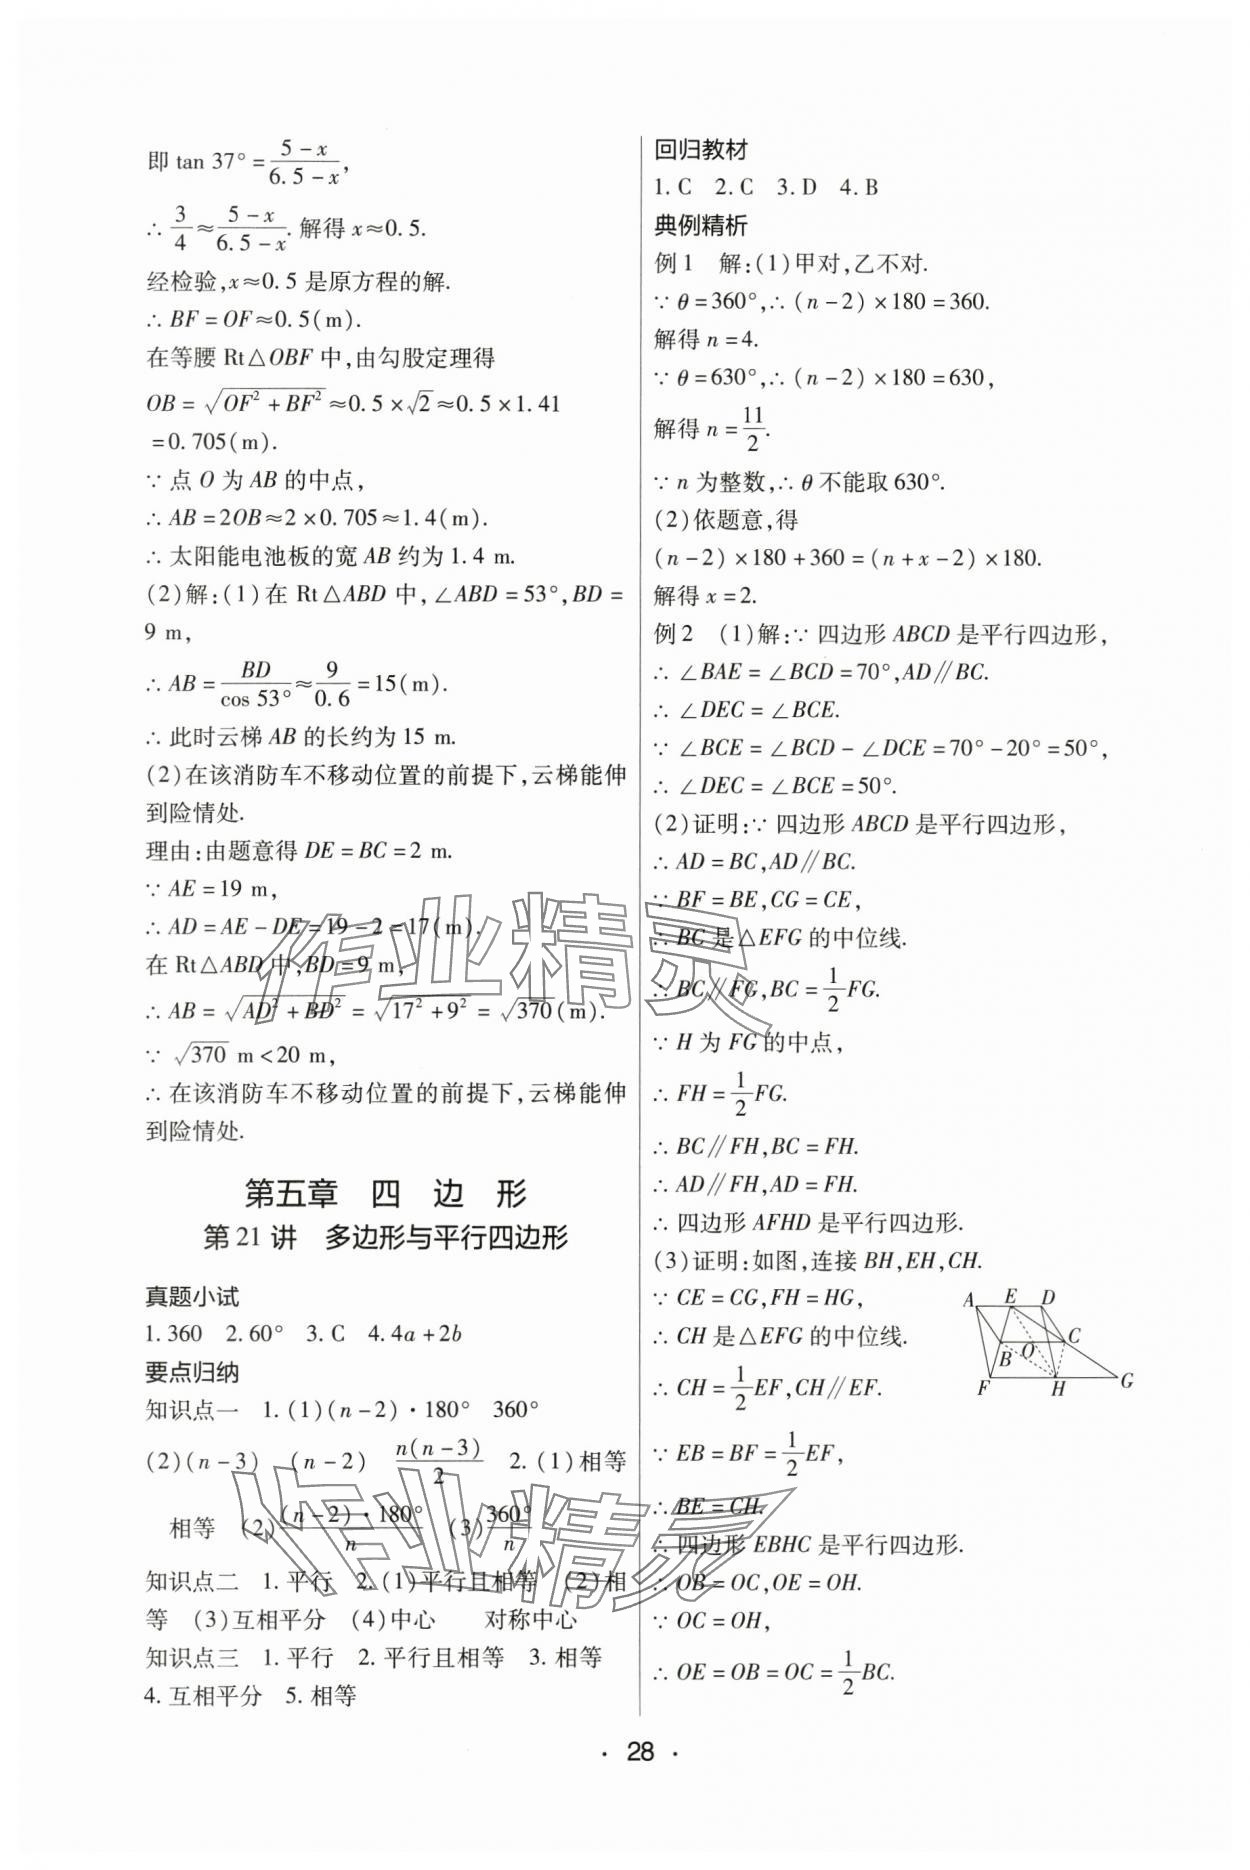 即 tan 37° = (5-x)/(6.5-x),
∴ 3/4 ≈ (5-x)/(6.5-x). 解得 x≈0.5.
经检验,x≈0.5 是原方程的解.
∴ BF=OF≈0.5(m).
在等腰 Rt△OBF 中,由勾股定理得
OB=√(OF²+BF²)≈0.5×√2≈0.5×1.41
=0.705(m).
∵ 点 O 为 AB 的中点,
∴ AB=2OB≈2×0.705≈1.4(m).
∴ 太阳能电池板的宽 AB 约为 1.4 m.
(2)解:(1)在 Rt△ABD 中,∠ABD=53°,BD=
9 m,
∴ AB=BD/cos 53°≈9/0.6=15(m).
∴ 此时云梯 AB 的长约为 15 m.
(2)在该消防车不移动位置的前提下,云梯能伸
到险情处.
理由:由题意得 DE=BC=2 m.
∵ AE=19 m,
∴ AD=AE-DE=19-2=17(m).
在 Rt△ABD 中,BD=9 m,
∴ AB=√(AD²+BD²)=√(17²+9²)=√370(m).
∵ √370 m<20 m,
∴ 在该消防车不移动位置的前提下,云梯能伸
到险情处.
第五章 四 边 形
第 21 讲 多边形与平行四边形
真题小试
1.360 2.60° 3.C 4.4a+2b
要点归纳
知识点一 1.(1)(n-2)·180° 360°
(2)(n-3) (n-2) n(n-3)/2 2.(1)相等
相等 (2)(n-2)·180°/n (3)360°/n
知识点二 1.平行 2.(1)平行且相等 (2)相
等 (3)互相平分 (4)中心 对称中心
知识点三 1.平行 2.平行且相等 3.相等
4.互相平分 5.相等
回归教材
1.C 2.C 3.D 4.B
典例精析
例1 解:(1)甲对,乙不对.
∵ θ=360°,∴ (n-2)×180=360.
解得 n=4.
∵ θ=630°,∴ (n-2)×180=630,
解得 n=11/2.
∵ n 为整数,∴ θ 不能取 630°.
(2)依题意,得
(n-2)×180+360=(n+x-2)×180.
解得 x=2.
例2 (1)解:∵ 四边形 ABCD 是平行四边形,
∴ ∠BAE=∠BCD=70°,AD∥BC.
∴ ∠DEC=∠BCE.
∵ ∠BCE=∠BCD-∠DCE=70°-20°=50°,
∴ ∠DEC=∠BCE=50°.
(2)证明:∵ 四边形 ABCD 是平行四边形,
∴ AD=BC,AD∥BC.
∵ BF=BE,CG=CE,
∴ BC 是△EFG 的中位线.
∴ BC∥FG,BC=1/2FG.
∵ H 为 FG 的中点,
∴ FH=1/2FG.
∴ BC∥FH,BC=FH.
∴ AD∥FH,AD=FH.
∴ 四边形 AFHD 是平行四边形.
(3)证明:如图,连接 BH,EH,CH.
∵ CE=CG,FH=HG,
∴ CH 是△EFG 的中位线.
∴ CH=1/2EF,CH∥EF.
∵ EB=BF=1/2EF,
∴ BE=CH.
∴ 四边形 EBHC 是平行四边形.
∴ OB=OC,OE=OH.
∵ OC=OH,
∴ OE=OB=OC=1/2BC.
A E D
B O C
F H G
作业精灵
作业精灵
· 28 ·